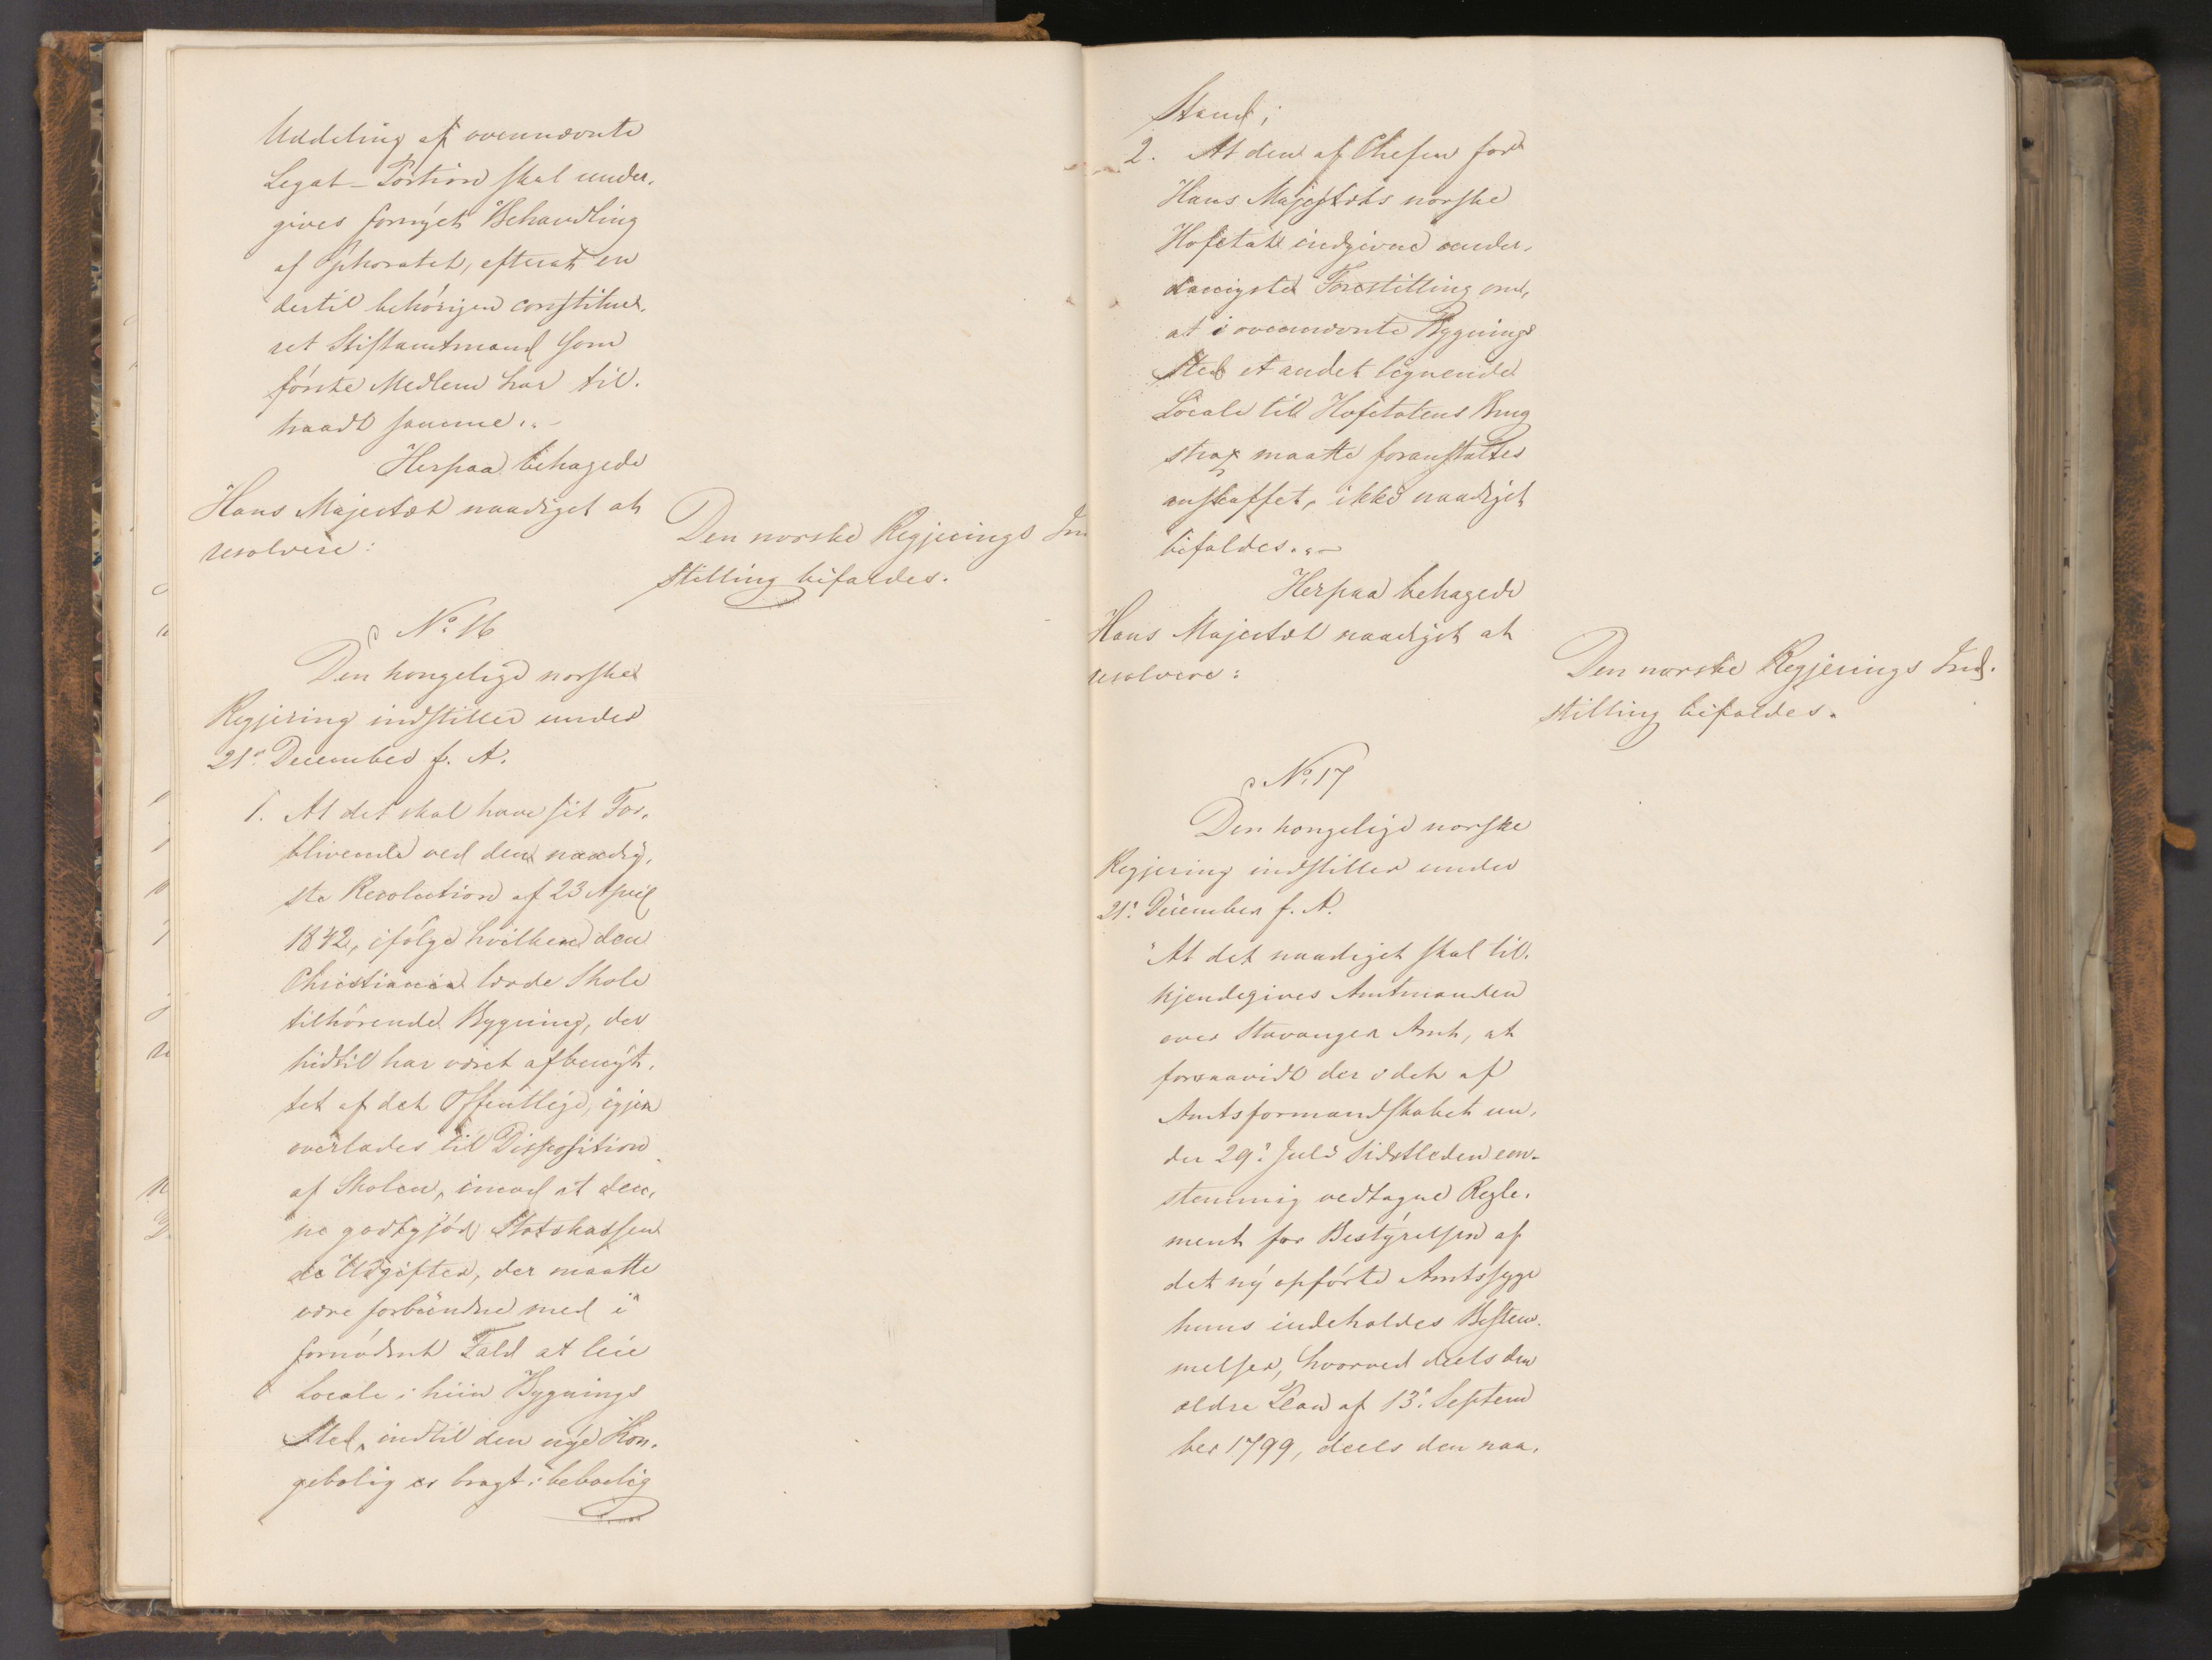 Uddeling af ovennævnte
Legat-Portion skal under-
gives fornyet Behandling
af Ephoratet, efterat en
dertil behörigen constitue-
ret Stiftamtmand som
förste Medlem har til-
traadt samme.
Herpaa behagede
Hans Majestæt naadigst at
resolvere:
Den norske Regjerings In
stilling bifaldes.
No 16
Den kongelige norske
Regjering indstiller under
21de December f. A.
1. At det skal have sit For-
blivende ved den naadig-
ste Resolution af 23 April
1842, ifölge hvilken den
Christiania lærde Skole
tilhörende Bygning, der
hidtil har været afbenyt-
tet af det Offentlige, igjen
overlades til Disposition
af Skolen, imod at den-
ne godtgjör Statskassen
de Udgifter, der maatte
være forbundne med i
fornödent Fald at leie
Locale i hiin Bygnings
Sted, indtil den nye Kon-
gebolig er bragt i beboelig
Stand;
2. At den af Chefen for
Hans Majestæts norske
Hofetat indgivne under-
danigste Forestilling om,
at i ovennævnte Bygnings
Sted et andet lignende
Locale til Hofetatens Brug
strax maatte foranstaltes
anskaffet, ikke naadigst
bifaldes.
Herpaa behagede
Hans Majestæt naadigst at
resolvere:
Den norske Regjerings Ind-
stilling bifaldes.
No 17
Den kongelige norske
Regjering indstiller under
21de December f. A.
"At det naadigst skal til-
kjendegives Amtmanden
over Stavanger Amt, at
forsaavidt der i det af
Amtsformandskabet un-
der 29de Juli sidstleden een-
stemmig vedtagne Regle-
ment for Bestyrelsen af
det ny opförte Amtssyge
huus indeholdes Bestem-
melser, hvorved deels den
ældre Plan af 13de Septem
ber 1799, deels den naa-